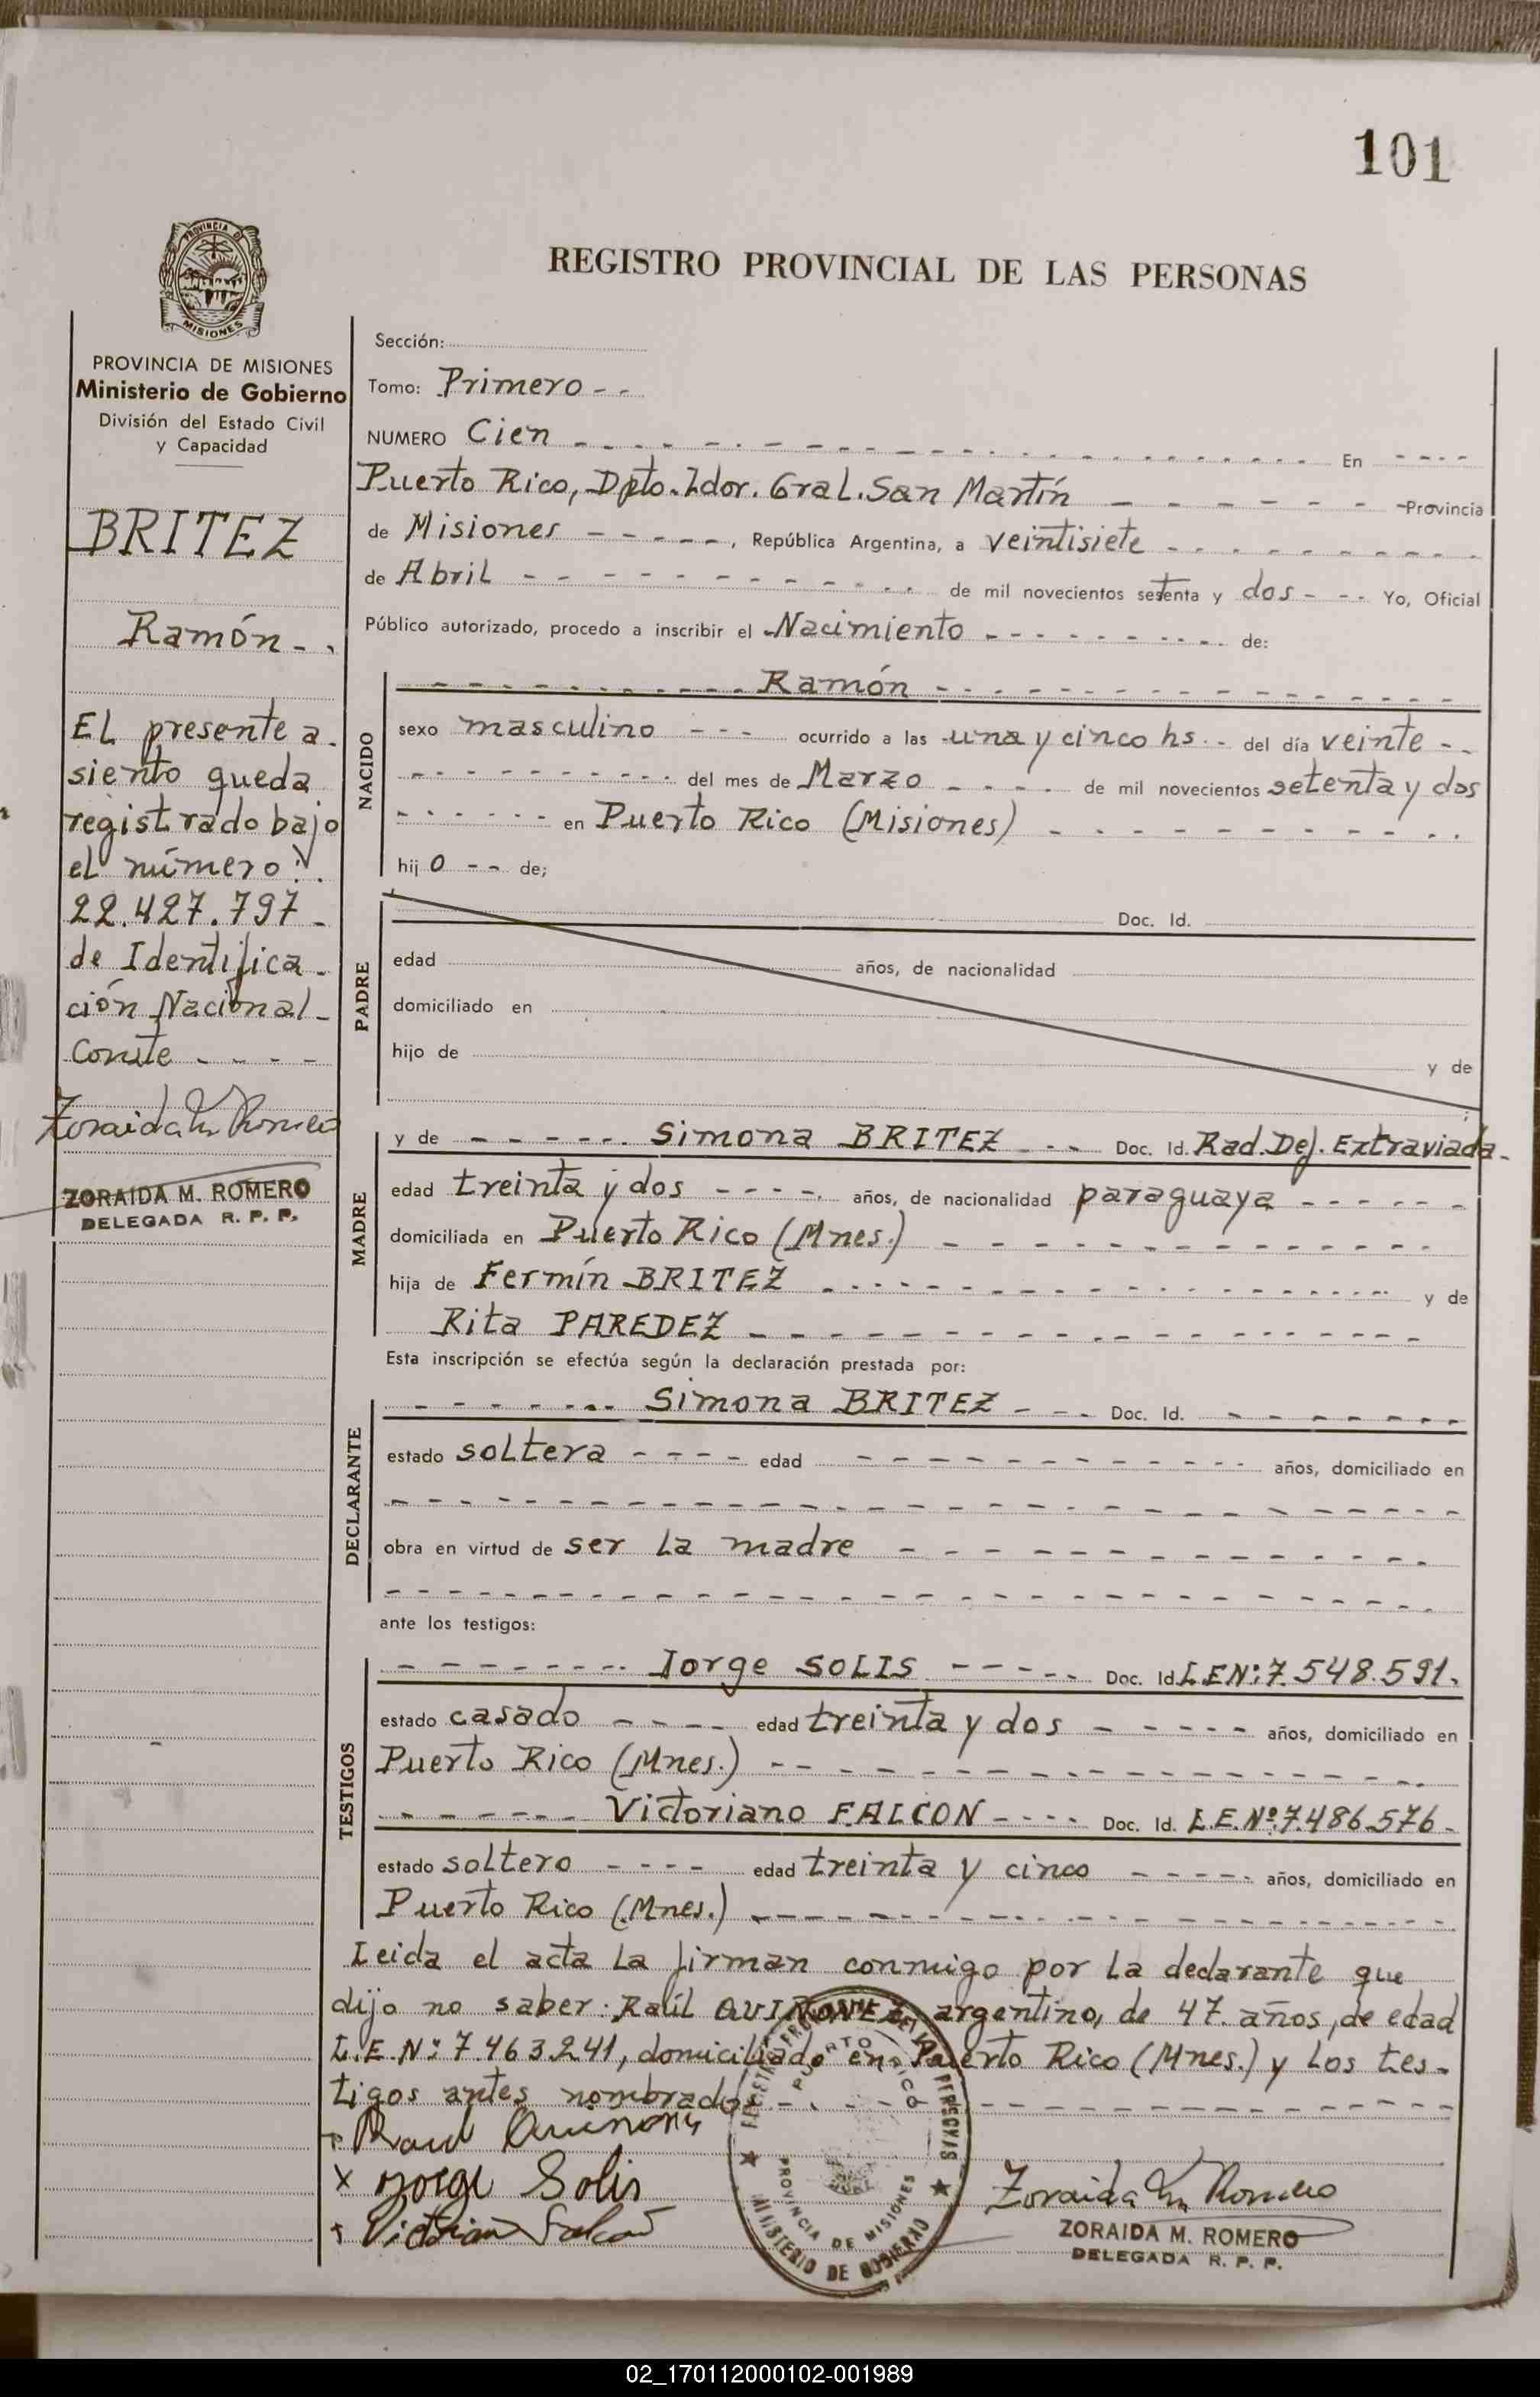 101
PROVINCIA DE
MISIONES
REGISTRO PROVINCIAL DE LAS PERSONAS
PROVINCIA DE MISIONES
Ministerio de Gobierno
División del Estado Civil
y Capacidad
BRITEZ
Ramón - .
EL presente a-
siento queda
registrado bajo
el número:
22.427.797 -
de Identifica-
ción Nacional-
Conste - - - -
Zoraida M. Romero
ZORAIDA M. ROMERO
DELEGADA R. P. P.
Sección:
Tomo: Primero - -
NUMERO Cien - - - - En - - - -
Puerto Rico, Dpto. Ldor. Gral. San Martín - - - - Provincia
de Misiones - - - - -, República Argentina, a veintisiete - - - -
de Abril - - - - de mil novecientos setenta y dos - - - Yo, Oficial
Público autorizado, procedo a inscribir el Nacimiento - - - - de:
NACIDO
- - - - Ramón - - - -
sexo masculino - - - ocurrido a las una y cinco hs. - del día veinte - -
- - - - del mes de Marzo - - - - de mil novecientos setenta y dos
- - - - en Puerto Rico (Misiones) - - - -
hij o - - de;
PADRE
Doc. Id.
edad años, de nacionalidad
domiciliado en
hijo de y de
MADRE
y de - - - - Simona BRITEZ - - - Doc. Id. Rad. Def. Extraviada -
edad treinta y dos - - - - años, de nacionalidad paraguaya - - - -
domiciliada en Puerto Rico (Mnes.) - - - -
hija de Fermín BRITEZ - - - - y de
Rita PAREDEZ - - - -
Esta inscripción se efectúa según la declaración prestada por:
DECLARANTE
- - - - Simona BRITEZ - - - Doc. Id. - - - -
estado soltera - - - - edad - - - - años, domiciliado en
- - - -
obra en virtud de ser la madre - - - -
- - - -
ante los testigos:
TESTIGOS
- - - - Jorge SOLIS - - - - Doc. Id L.E.Nº: 7.548.591.
estado casado - - - - edad treinta y dos - - - - años, domiciliado en
Puerto Rico (Mnes.) - - - -
- - - - Victoriano FALCON - - - - Doc. Id. L.E.Nº: 7.486.576 -
estado soltero - - - - edad treinta y cinco - - - - años, domiciliado en
Puerto Rico (Mnes.) - - - -
Leida el acta la firman conmigo por la declarante que
dijo no saber: Raúl QUIÑONEZ, argentino, de 47 años, de edad
L.E.Nº: 7.463.241, domiciliado en Puerto Rico (Mnes.) y los tes-
tigos antes nombrados - - - -
+ Raul Quiñonez
x Jorge Solis
+ Victoriano Falcon
REGISTRO PROVINCIAL DE LAS PERSONAS
PUERTO RICO
PROVINCIA DE MISIONES
MINISTERIO DE GOBIERNO
Zoraida M. Romero
ZORAIDA M. ROMERO
DELEGADA R. P. P.
02_170112000102-001989